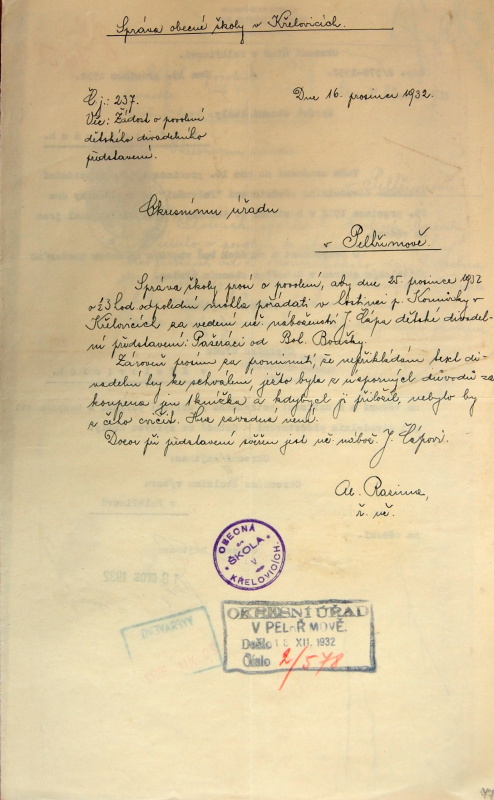 Správa obecné školy v Křelovicích.
Č.j.: 237.
Dne 16. prosince 1932.
Věc: Žádost o povolení
dětského divadelního
představení.
Okresnímu úřadu
v Pelhřimově.
Správa školy prosí o povolení, aby dne 25. prosince 1932
o ½3 hod. odpolední mohla pořádati v hostinci p. Kominky v
Křelovicích za vedení uč. náboženství J. Čápa dětské divadel-
ní představení: Pašeráci od Bol. Boušky.
Zároveň prosím za prominutí, že nepřikládám text di-
vadelní hry ke schválení, ježto byla z úsporných důvodů za-
koupena jen 1 knížka a kdybych ji přiložil, nebylo by
z čeho cvičit. Hra závadná není.
Dozor při představení svěřen jest uč. nábož. J. Čápovi.
Al. Rasima,
ř. uč.
OBECNÁ
ŠKOLA
V
KŘELOVICÍCH.
OKRESNÍ ÚŘAD
V PELHŘIMOVĚ.
Došlo 18 XII. 1932
Číslo 2/578